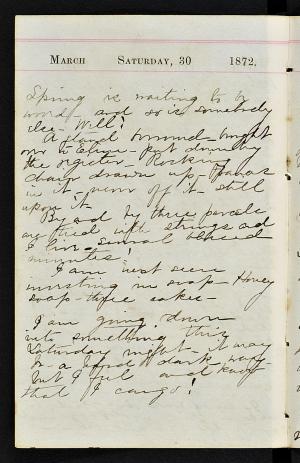 March Saturday, 30 1872.
Spring is waiting to
word – and so is somebody
else – Will!
A hand bought
put down by
the register – Rocking
chair drawn up –
in it – off it – still
upon it
By and by three parcels
are tied with strings and
I live several
minutes!
I am next seen
investing in soap – Honey
soap – three cakes –
I am going down
into something this
Saturday night – it may
be a hard dark way
but I feel and know
that I can go!